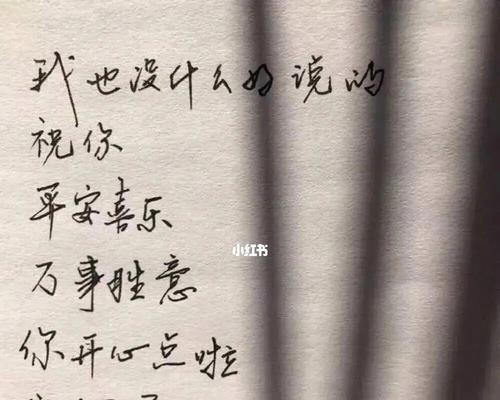 我也没什么好说的
祝你
平安喜乐
万事胜意
小红书
你开心点啦